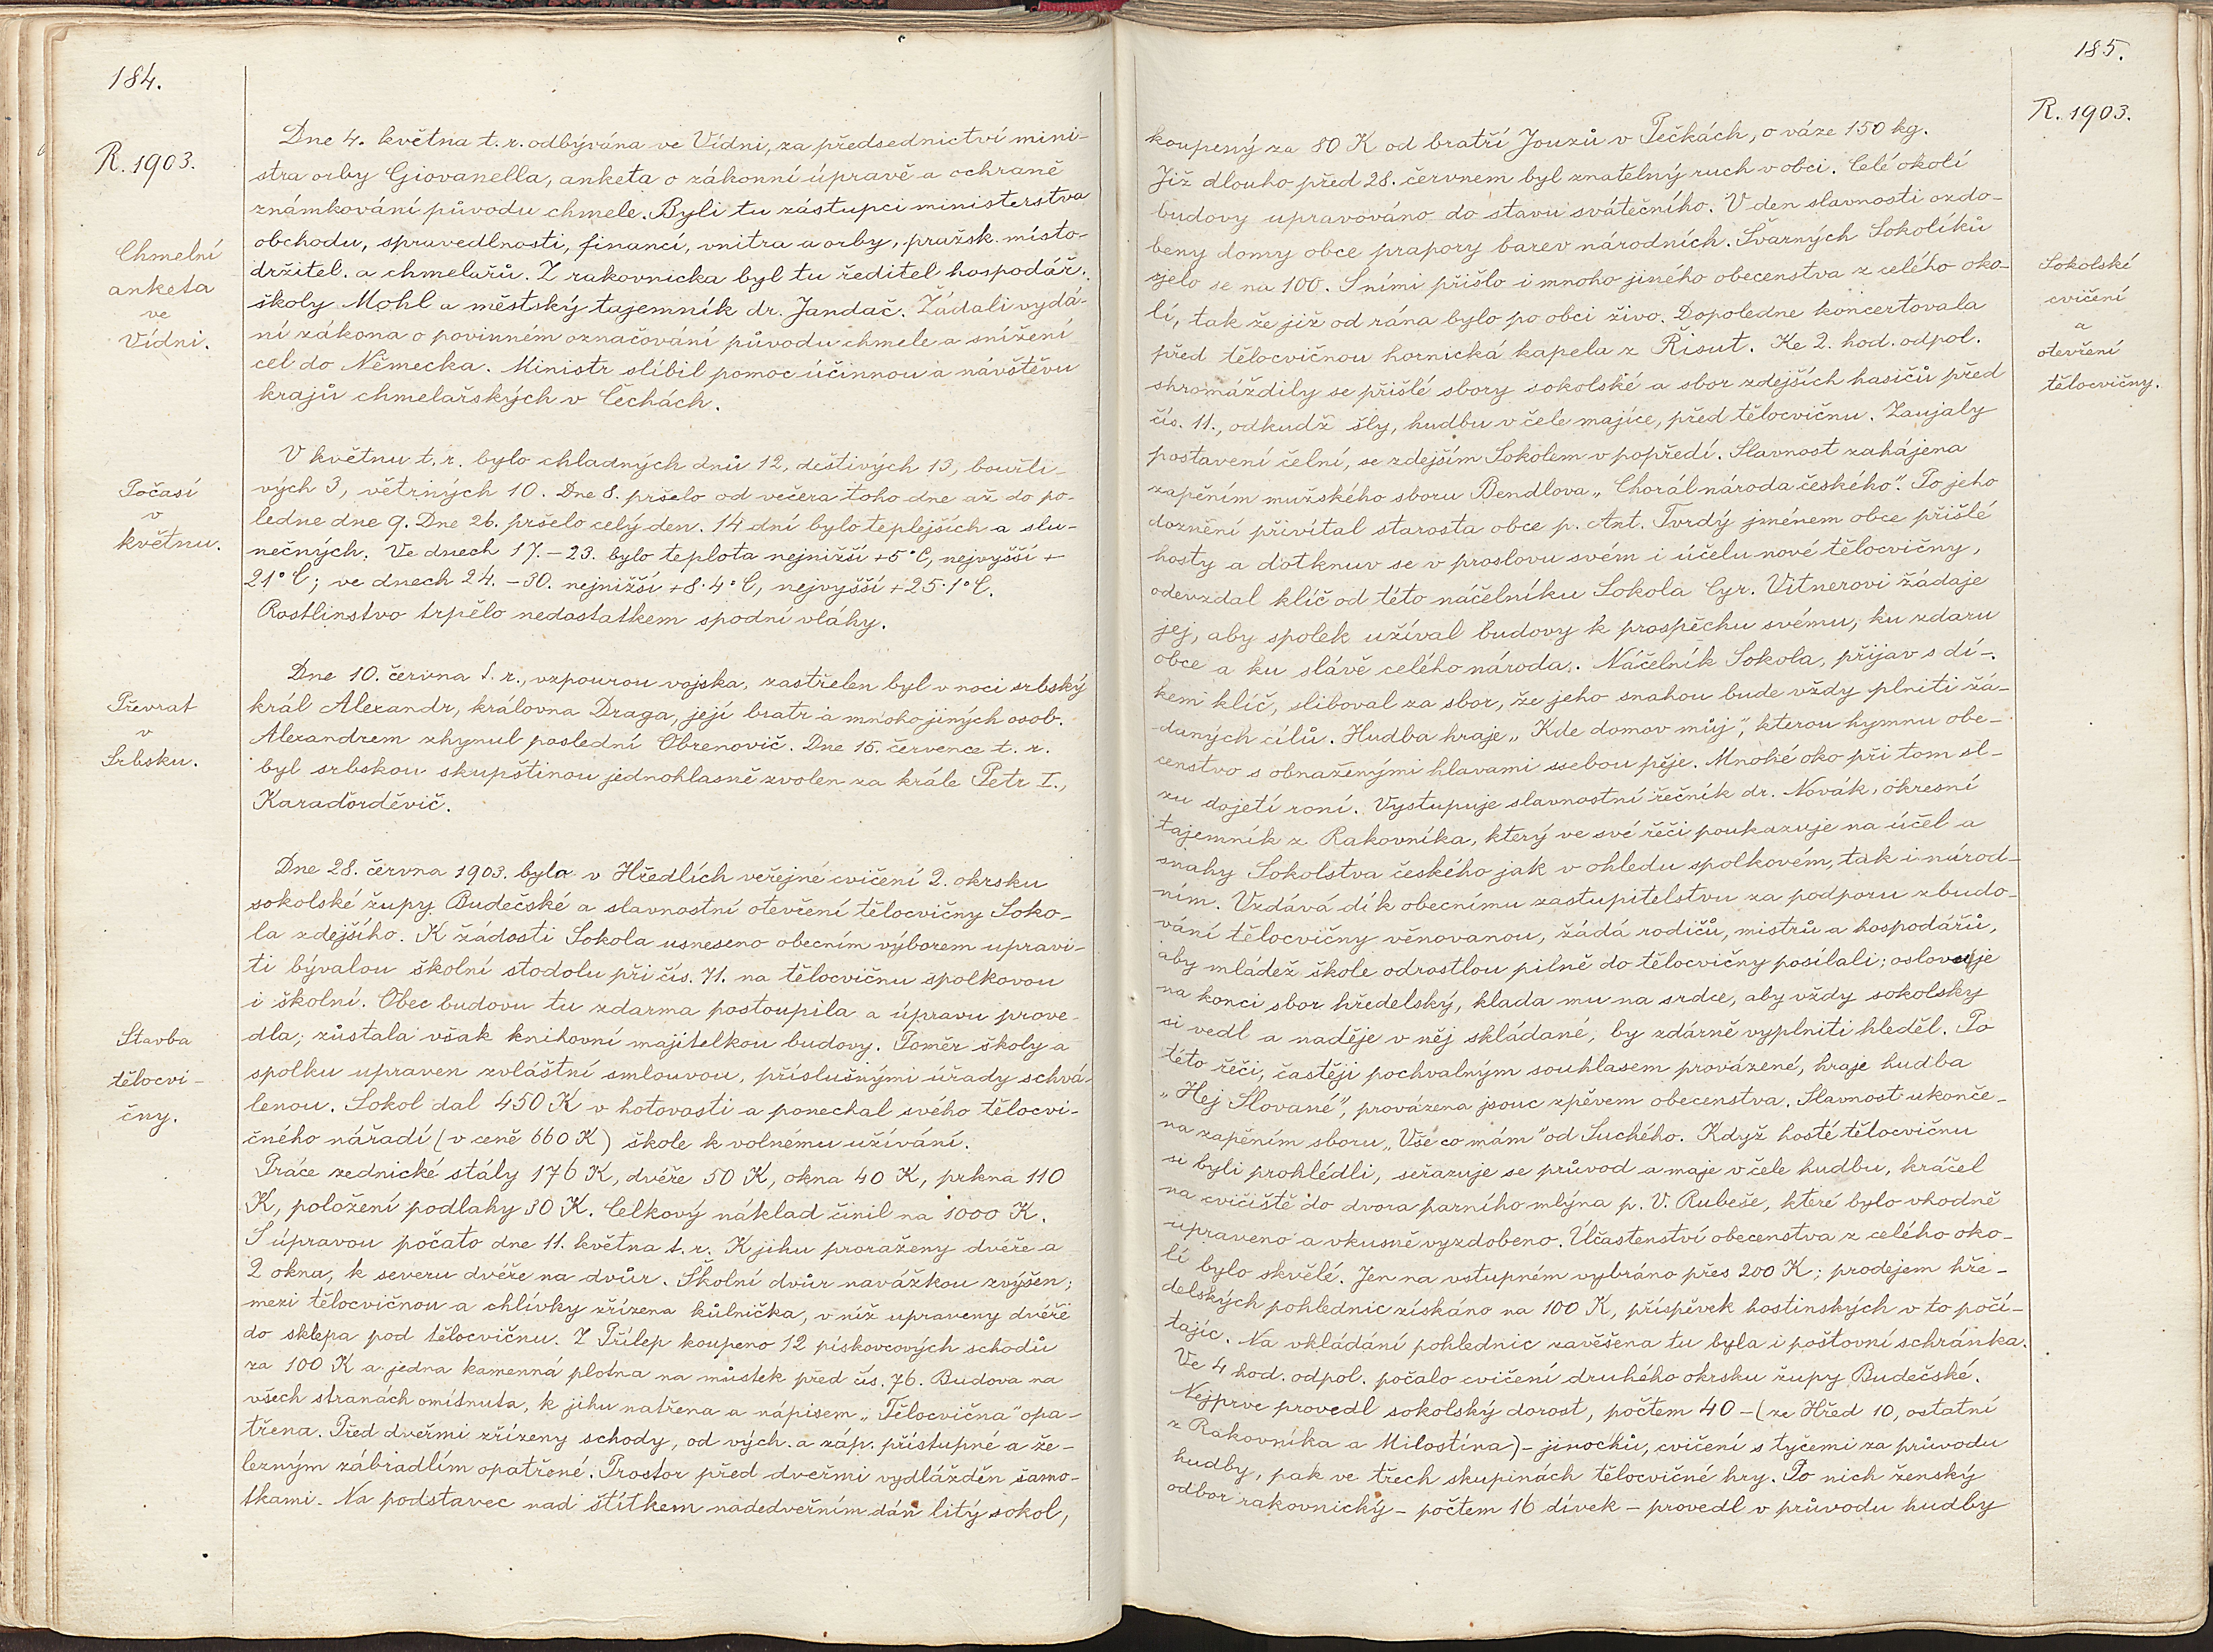 184.
R. 1903.
Dne 4. května t. r. odbývána ve Vídni, za předsednictví mini-
stra orby Giovanella, anketa o zákonní úpravě a ochraně
známkování původu chmele. Byli tu zástupci ministerstva
Chmelní
anketa
ve
Vídni.
obchodu, spravedlnosti, financí, vnitra a orby, pražsk. místo-
držitel. a chmelařů. Z rakovnicka byl tu ředitel hospodář.
školy Mohl a městský tajemník dr. Jandač. Žádali vydá-
ní zákona o povinném označování původu chmele a snížení
cel do Německa. Ministr slíbil pomoc účinnou a návštěvu
krajů chmelařských v Čechách.
Počasí
v
květnu.
V květnu t. r. bylo chladných dnů 12, deštivých 13, bouřli-
vých 3, větrných 10. Dne 8. pršelo od večera toho dne až do po-
ledne dne 9. Dne 26. pršelo celý den. 14 dní bylo teplejších a slu-
nečných. Ve dnech 17. – 23. bylo teplota nejnižší +5°C, nejvyšší +
21°C; ve dnech 24. – 30. nejnižší +8·4°C, nejvyšší +25·1°C.
Rostlinstvo trpělo nedostatkem spodní vláhy.
Převrat
v
Srbsku.
Dne 10. června t. r., vzpourou vojska, zastřelen byl v noci srbský
král Alexandr, královna Draga, její bratr a mnoho jiných osob.
Alexandrem zhynul poslední Obrenovič. Dne 15. července t. r.
byl srbskou skupštinou jednohlasně zvolen za krále Petr I.,
Karaďorděvič.
Dne 28. června 1903. byla v Hředlích veřejné cvičení 2. okrsku
sokolské župy Budečské a slavnostní otevření tělocvičny Soko-
la zdejšího. K žádosti Sokola usneseno obecním výborem upravi-
ti bývalou školní stodolu při čís. 71. na tělocvičnu spolkovou
i školní. Obec budovu tu zdarma postoupila a úpravu prove-
Stavba
tělocvi-
čny.
dla; zůstala však knihovní majitelkou budovy. Poměr školy a
spolku upraven zvláštní smlouvou, příslušnými úřady schvá-
lenou. Sokol dal 450 K v hotovosti a ponechal svého tělocvi-
čného nářadí (v ceně 660 K) škole k volnému užívání.
Práce zednické stály 176 K, dvéře 50 K, okna 40 K, prkna 110
K, položení podlahy 30 K. Celkový náklad činil na 1000 K.
S úpravou počato dne 11. května t. r. K jihu proraženy dvéře a
2 okna, k severu dvéře na dvůr. Školní dvůr navážkou zvýšen;
mezi tělocvičnou a chlívky zřízena kůlnička, v níž upraveny dvéře
do sklepa pod tělocvičnu. Z Přílep koupeno 12 pískovcových schodů
za 100 K a jedna kamenná plotna na můstek před čís. 76. Budova na
všech stranách omítnuta, k jihu natřena a nápisem „Tělocvična" opa-
třena. Před dveřmi zřízeny schody, od vých. a záp. přístupné a že-
lezným zábradlím opatřené. Prostor před dveřmi vydlážděn šamo-
tkami. Na podstavec nad štítkem nadedveřním dán litý sokol,
185.
R. 1903.
koupený za 80 K od bratří Jouzů v Pečkách, o váze 150 kg.
Již dlouho před 28. červnem byl znatelný ruch v obci. Celé okolí
budovy upravováno do stavu svátečního. V den slavnosti ozdo-
beny domy obce prapory barev národních. Švarných Sokolíků
sjelo se na 100. S nimi přišlo i mnoho jiného obecenstva z celého oko-
Sokolské
cvičení
a
otevření
tělocvičny.
lí, tak že již od rána bylo po obci živo. Dopoledne koncertovala
před tělocvičnou hornická kapela z Řisut. Ke 2. hod. odpol.
shromáždily se přišlé sbory sokolské a sbor zdejších hasičů před
čís. 11., odkudž šly, hudbu v čele majíce, před tělocvičnu. Zaujaly
postavení čelní, se zdejším Sokolem v popředí. Slavnost zahájena
zapěním mužského sboru Bendlova „Chorál národa českého". Po jeho
doznění přivítal starosta obce p. Ant. Tvrdý jménem obce přišlé
hosty a dotknuv se v proslovu svém i účelu nové tělocvičny,
odevzdal klíč od této náčelníku Sokola Cyr. Vitnerovi žádaje
jej, aby spolek užíval budovy k prospěchu svému, ku zdaru
obce a ku slávě celého národa. Náčelník Sokola, přijav s dí-
kem klíč, sliboval za sbor, že jeho snahou bude vždy plniti žá-
daných cílů. Hudba hraje „Kde domov můj", kterou hymnu obe-
censtvo s obnaženými hlavami ssebou pěje. Mnohé oko při tom sl-
zu dojetí roní. Vystupuje slavnostní řečník dr. Novák, okresní
tajemník z Rakovníka, který ve své řeči poukazuje na účel a
snahy Sokolstva českého jak v ohledu spolkovém, tak i národ-
ním. Vzdává dík obecnímu zastupitelstvu za podporu zbudo-
vání tělocvičny věnovanou, žádá rodičů, mistrů a hospodářů,
aby mládež škole odrostlou pilně do tělocvičny posílali; oslovuje
na konci sbor hředelský, klada mu na srdce, aby vždy sokolsky
si vedl a naděje v něj skládané, by zdárně vyplniti hleděl. Po
této řeči, častěji pochvalným souhlasem provázené, hraje hudba
„Hej Slované", provázena jsouc zpěvem obecenstva. Slavnost ukonče-
na zapěním sboru „Vše co mám" od Suchého. Když hosté tělocvičnu
si byli prohlédli, seřazuje se průvod a maje v čele hudbu, kráčel
na cvičiště do dvora parního mlýna p. V. Rubeše, které bylo vhodně
upraveno a vkusně vyzdobeno. Účastenství obecenstva z celého oko-
lí bylo skvělé. Jen na vstupném vybráno přes 200 K; prodejem hře-
delských pohlednic získáno na 100 K, příspěvek hostinských v to počí-
tajíc. Na vkládání pohlednic zavěšena tu byla i poštovní schránka.
Ve 4 hod. odpol. počalo cvičení druhého okrsku župy Budečské.
Nejprve provedl sokolský dorost, počtem 40 – (ze Hřed 10, ostatní
z Rakovníka a Milostína) – jinochů, cvičení s tyčemi za průvodu
hudby, pak ve třech skupinách tělocvičné hry. Po nich ženský
odbor rakovnický – počtem 16 dívek – provedl v průvodu hudby